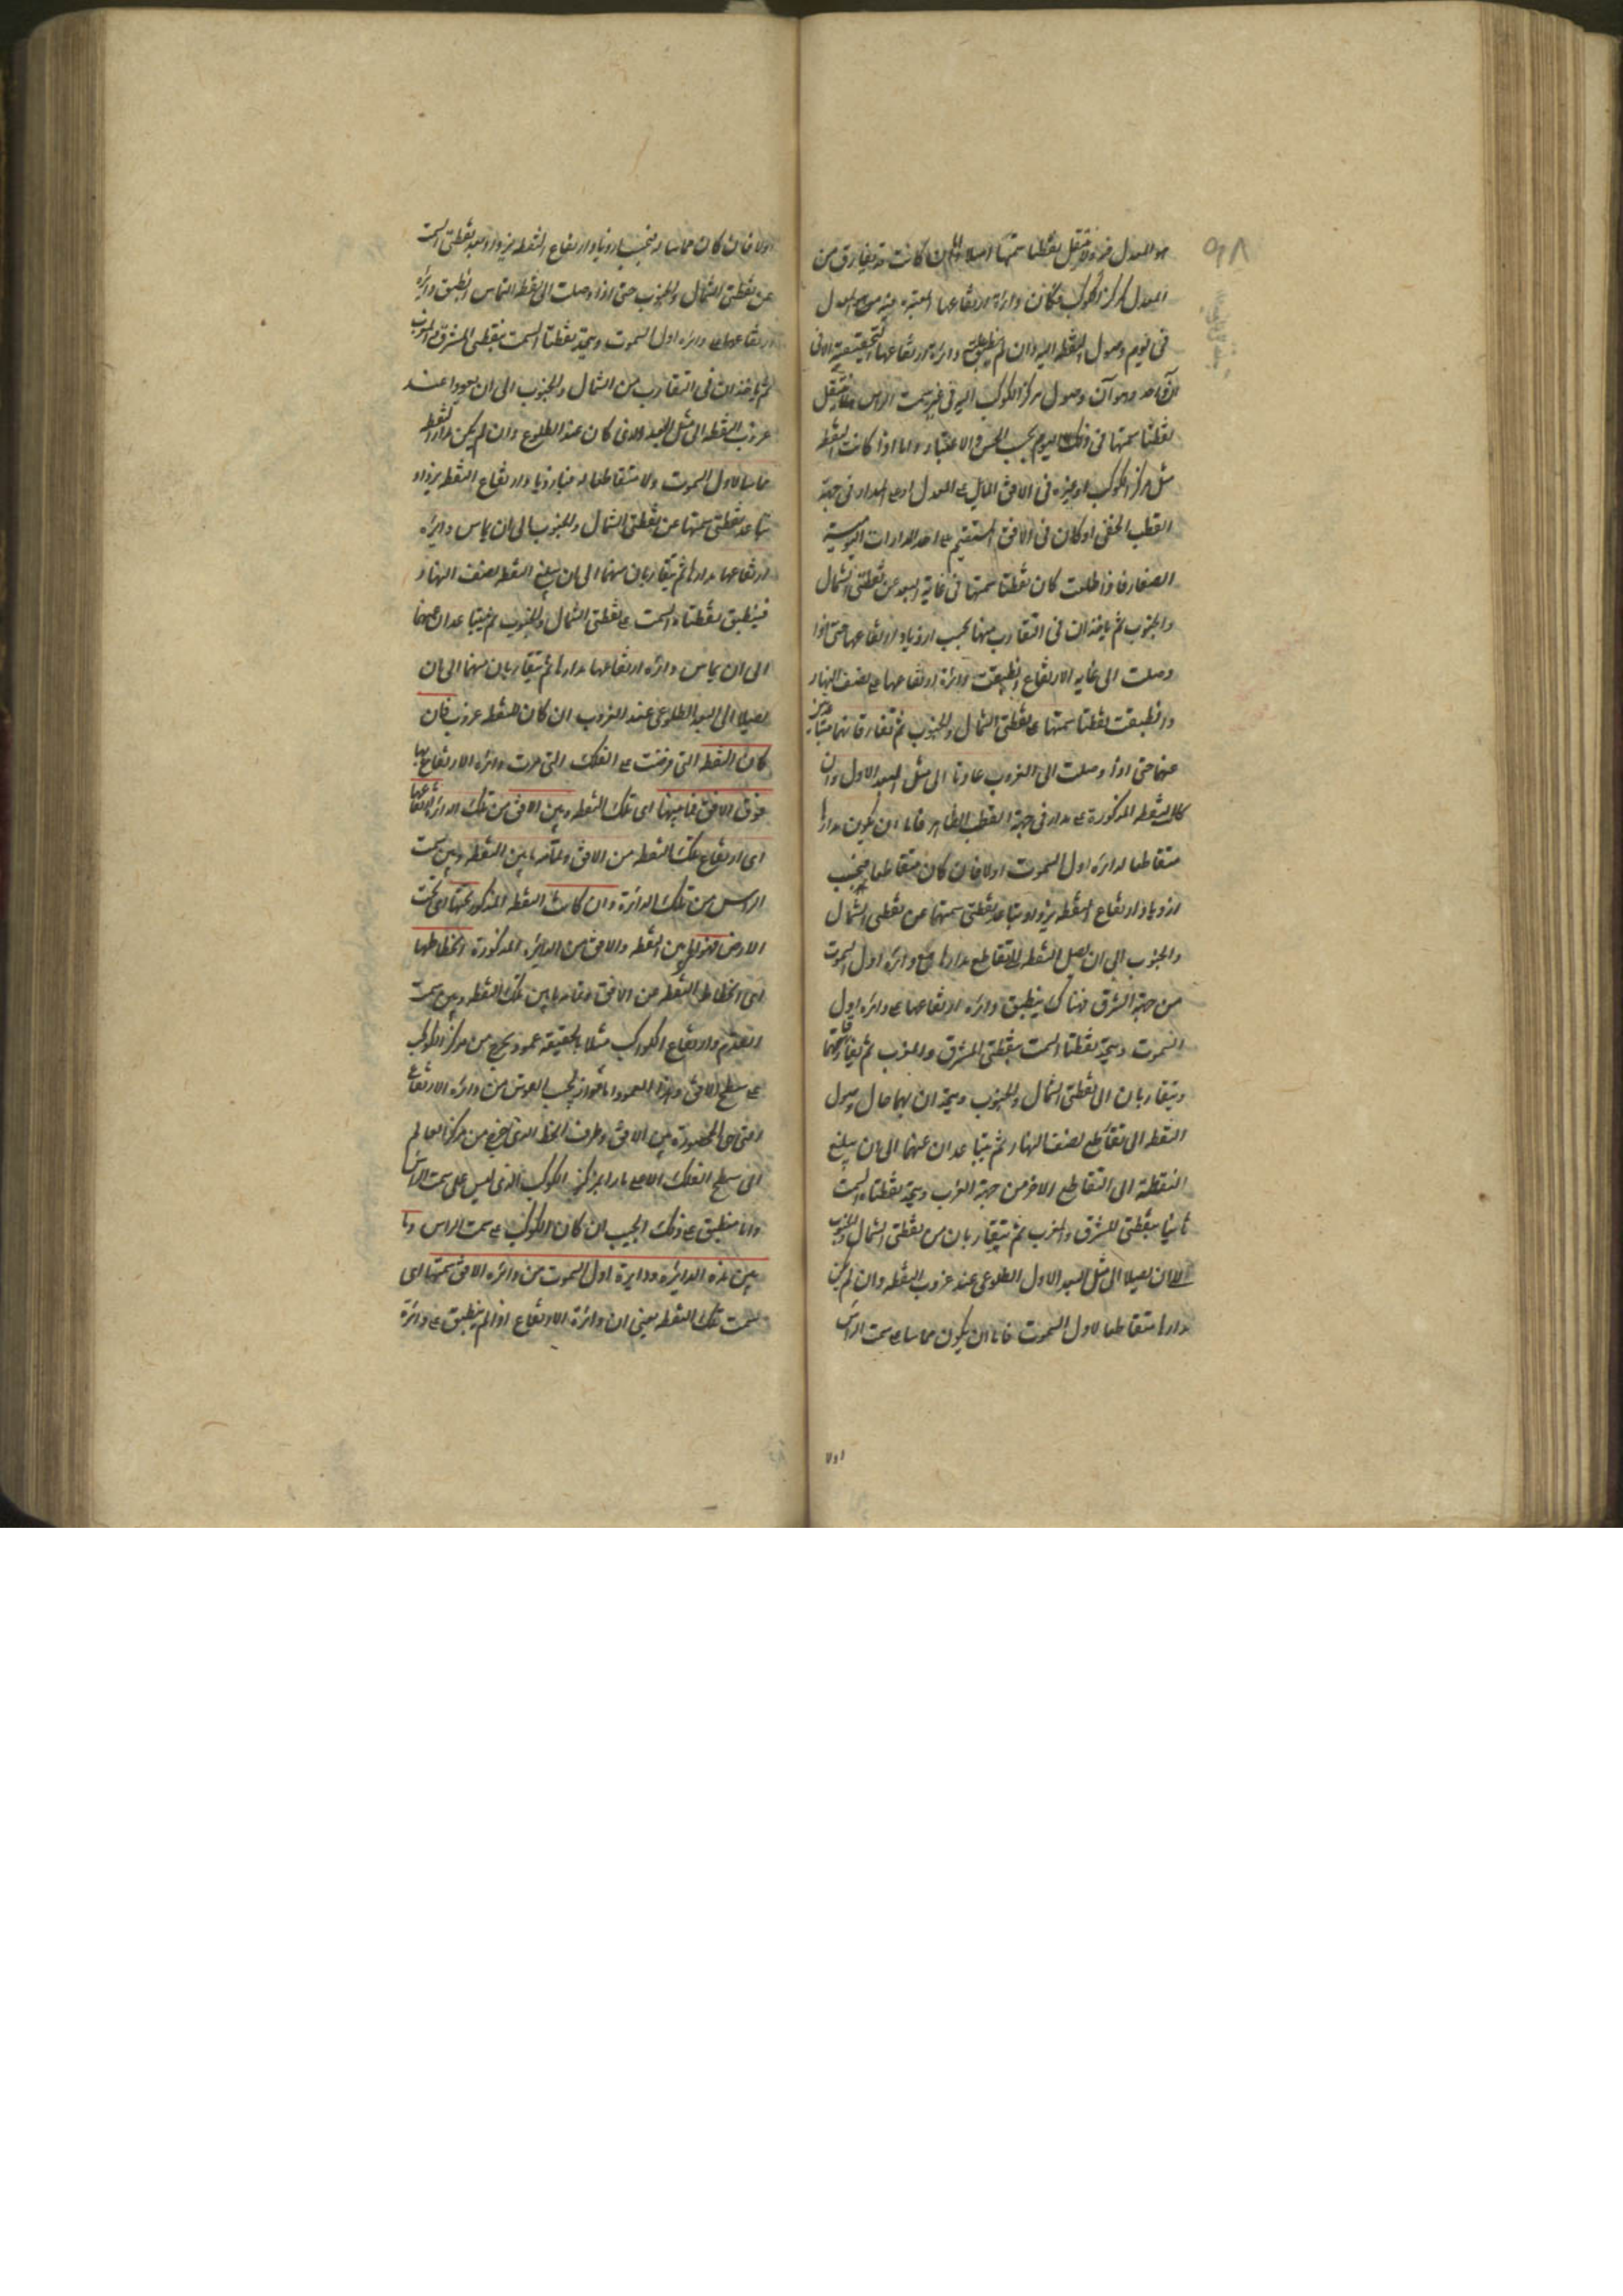 هو المعدل فلا تنتقل نقطتا سمتها اصلا وان كانت قد يفارق من
المعدل كمركز الكوكب فكان دائرة ارتفاعها المعدل
فى اليوم وصول النقطة اليه وان لم ينطبق دائرة ارتفاعها الحقيقية الا فى
آن واحد وهو آن وصول مركز الكوكب اليه فى غير سمت الراس فلا تنتقل
نقطتا سمتها فى ذلك اليوم بحسب الحس والاعتبار واما اذا كانت النقطة
مثل مركز الكوكب او غيره فى الافق المايل على المعدل او على المدار فى جهة
القطب الخفى او كان فى الافق المستقيم على احد المدارات اليومية
الصغار فاذا طلعت كان نقطتا سمتها فى غاية البعد عن نقطتى الشمال
والجنوب ثم ياخذان فى التقارب منهما بحسب ازدياد ارتفاعها حتى اذا
وصلت الى غاية الارتفاع وانطبقت دائرة ارتفاعها على نصف النهار
وانطبقت نقطتا سمتها على نقطتى الشمال والجنوب ثم تفارقانهما متباعدتين
عنهما حتى اذا وصلت الى الغروب عادتا الى مثل البعد الاول وان
كان النقطة المذكورة على مدار فى جهة القطب الظاهر فاما ان يكون مدارها
متقاطعا لدائرة اول السموت اولا فان كان متقاطعا فبحسب
ازدياد ارتفاع النقطة يزداد تباعد نقطتى سمتها عن نقطتى الشمال
والجنوب الى ان يصل النقطة الى تقاطع مدارها مع دائرة اول السموت
من جهة الشرق فهناك ينطبق دائرة ارتفاعها على دائرة اول
السموت ويتحد نقطتا السمت بنقطتى المشرق والمغرب ثم يفارقانهما
ويتقاربان الى نقطتى الشمال والجنوب ويتحدان بهما حال وصول
النقطة الى تقاطع نصف النهار ثم يتباعدان عنهما الى ان يبلغ
النقطة الى التقاطع الاخر من جهة الغرب ويتحد نقطتا السمت
ثانيا بنقطتى المشرق والمغرب ثم يتقاربان من نقطتى الشمال والجنوب
الى ان يصلا الى مثل البعد الاول الطلوعى عند غروب النقطة وان لم يكن
مدارها متقاطعا لاول السموت فاما ان يكون مماسا على سمت الراس
اولا
اولا فان كان مماسا له فبحسب ازدياد ارتفاع النقطة يزداد بعد نقطتى السمت
عن نقطتى الشمال والجنوب حتى اذا وصلت الى نقطة التماس انطبق دائرة
ارتفاعها على دائرة اول السموت ويتحد نقطتا السمت بنقطتى المشرق والمغرب
ثم ياخذان فى التقارب من الشمال والجنوب الى ان يعودا عند
غروب النقطة الى مثل البعد الذى كان عند الطلوع وان لم يكن مدار النقطة
مماسا لاول السموت ولا متقاطعا له فبازدياد ارتفاع النقطة يزداد
تباعد نقطتى سمتها عن نقطتى الشمال والجنوب الى ان يماس دائرة
ارتفاعها مدارها ثم يتقاربان منهما الى ان يبلغ النقطة نصف النهار
فينطبق نقطتا السمت على نقطتى الشمال والجنوب ثم يتباعدان عنهما
الى ان يماس دائرة ارتفاعها مدارها ثم يتقاربان منهما الى ان
يصلا الى البعد الطلوعى عند الغروب ان كان للنقطة غروب فان
كان النقطة التى فرضت على الفلك التى مرت دائرة الارتفاع بها
فوق الافق فما بينها اى تلك النقطة وبين الافق من تلك الدائرة ارتفاعها
اى ارتفاع تلك النقطة من الافق وتمامه ما بين النقطة وبين سمت
الراس من تلك الدائرة وان كانت النقطة المذكورة تحتها اى تحت
الارض فهو اى ما بين النقطة والافق من الدائرة المذكورة انحطاطها
اى انحطاط النقطة من الافق وتمامه ما بين تلك النقطة وبين سمت
القدم وارتفاع الكوكب مثلا بالحقيقة عمود يخرج من مركز الكوكب
على سطح الافق وهذا العمود لجيب القوس من دائرة الارتفاع
التى هى المحصورة بين الافق وطرف الخط الذى خرج من مركز العالم
الى سطح الفلك الاعلى مارا بمركز الكوكب الذى ليس على سمت الراس
واما منطبق على ذلك الجيب ان كان الكوكب على سمت الراس وما
بين هذه الدائرة ودايرة اول السموت من دائرة الافق سمتها اى
سمت تلك النقطة يعنى ان دائرة الارتفاع اذا لم ينطبق على دائرة